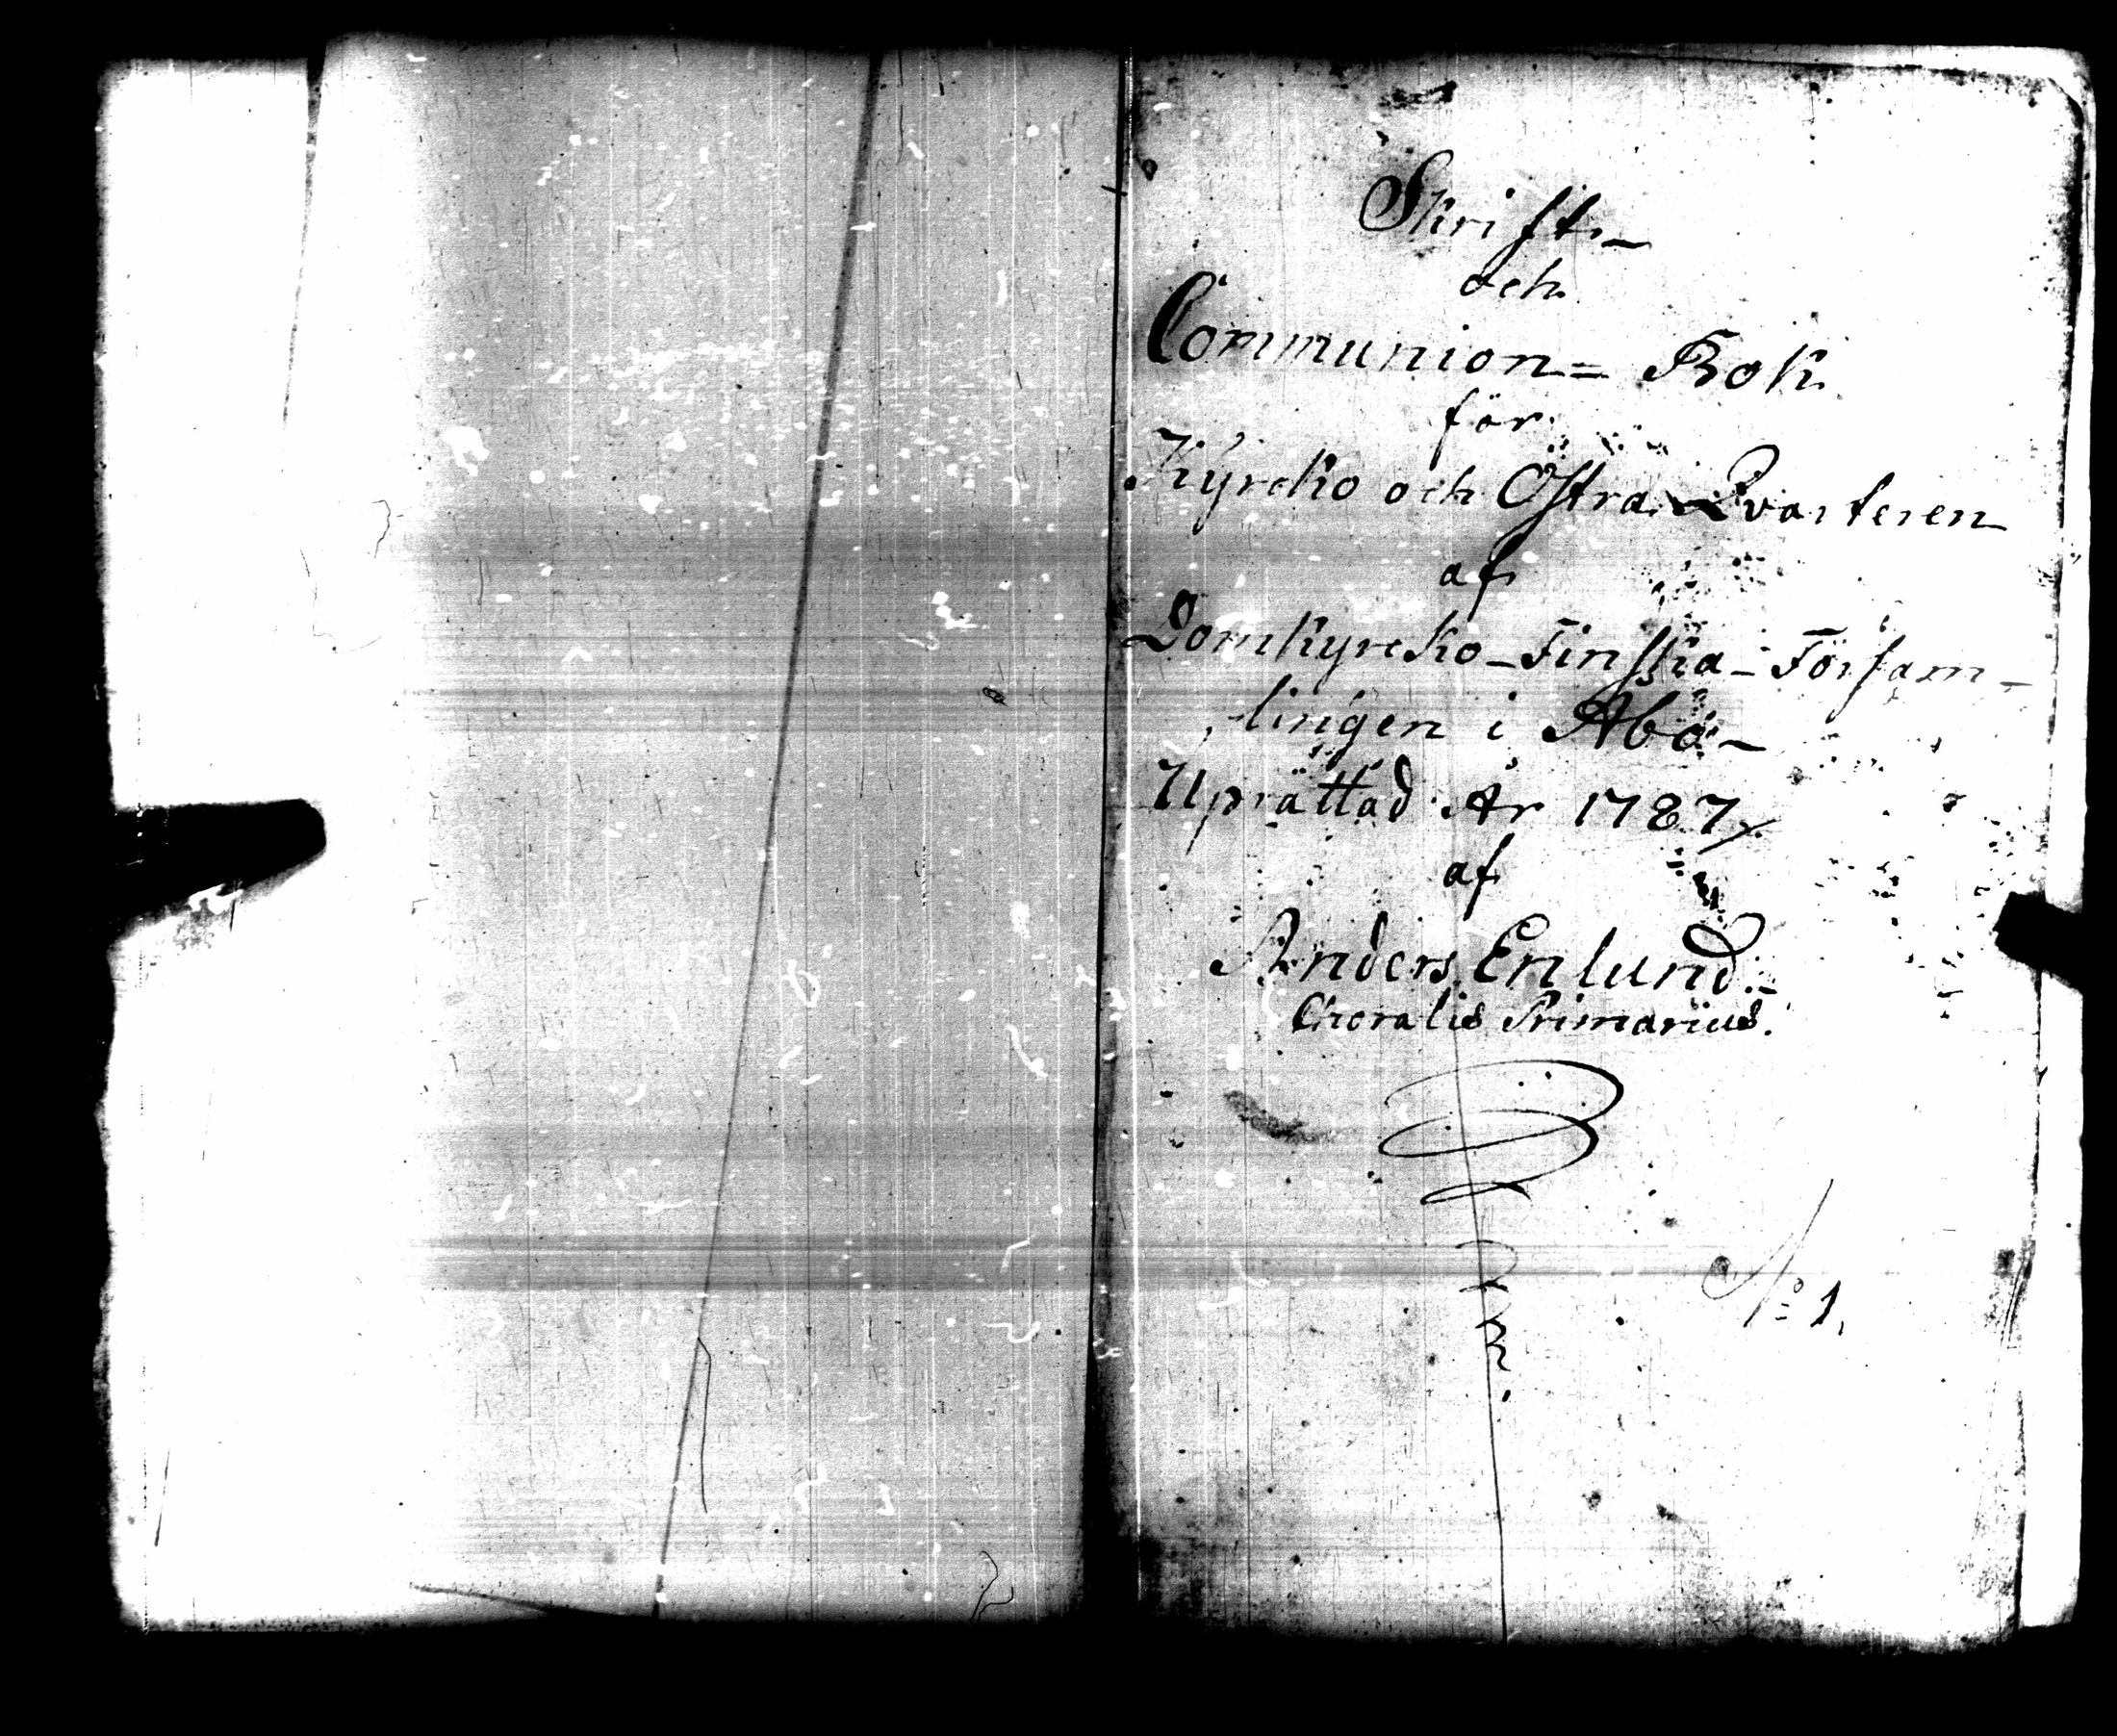 Skrift-
och
Communion= Bok
för
Kyrcko och Östra Qvarteren
af
Domkyrcko-Finska-Försam-
lingen i Åbo-
Uprättad År 1787
af
Anders Enlund.-
Choralis Primarius.
No 1.